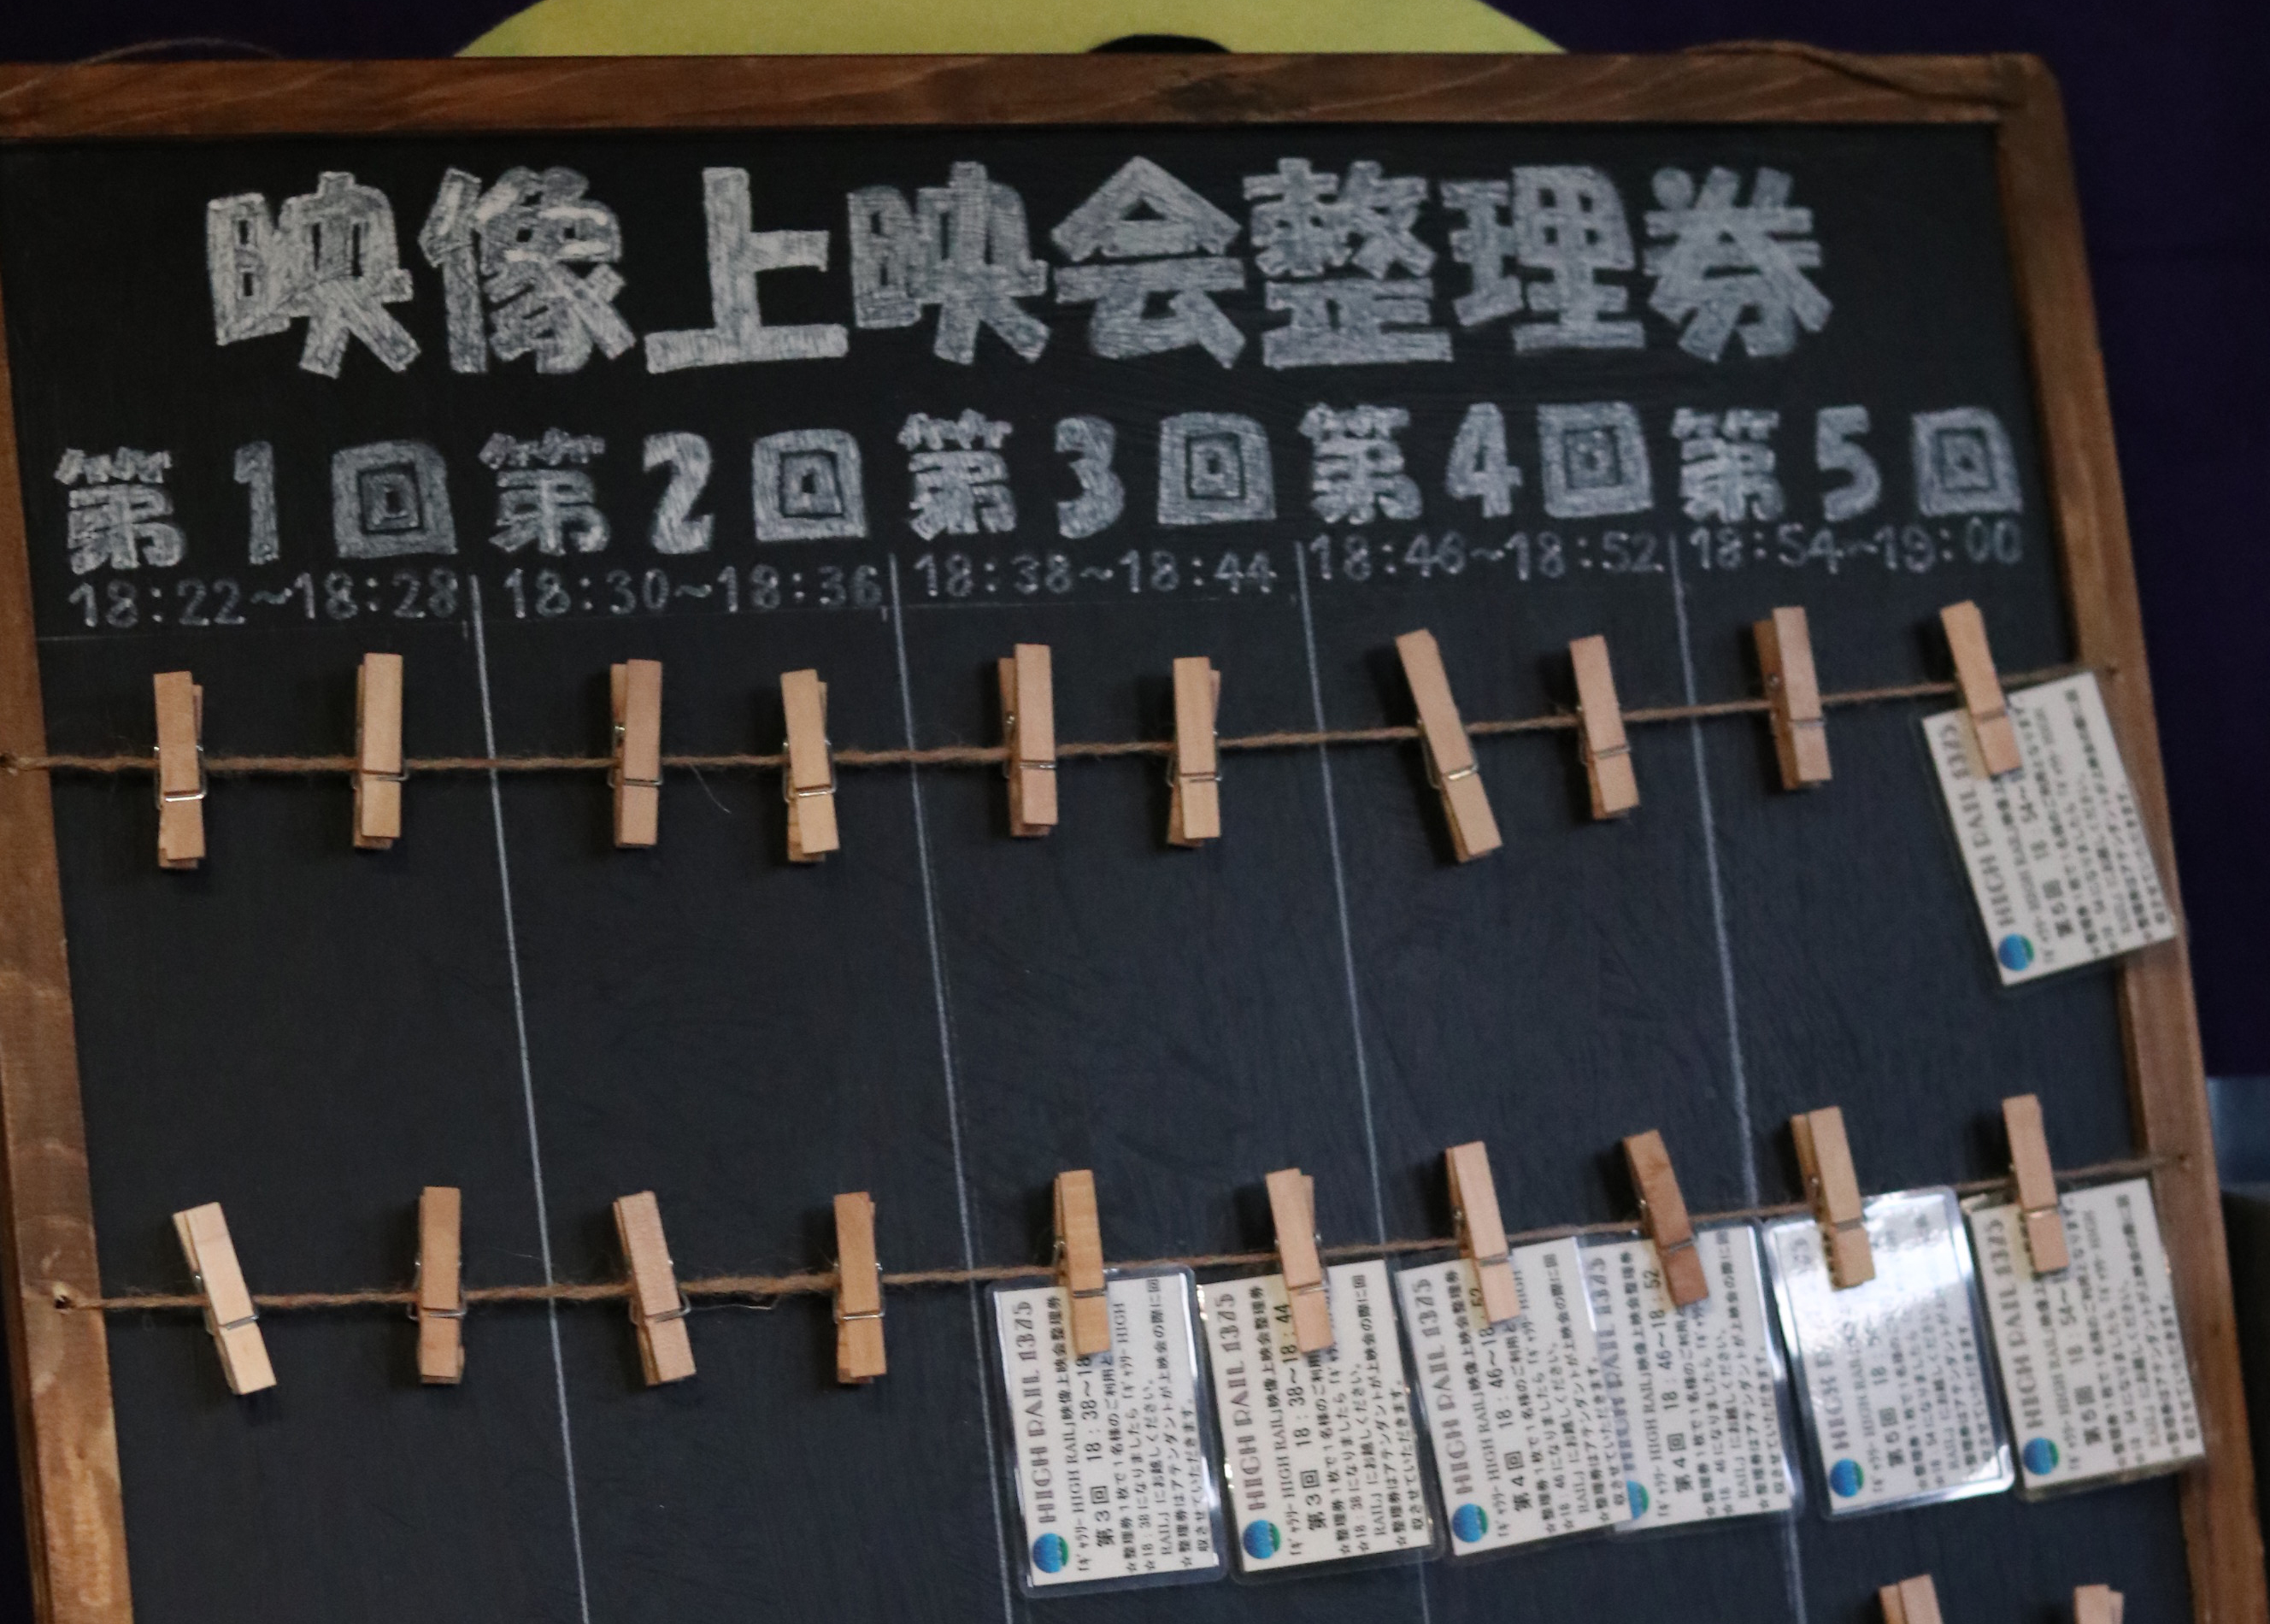 映像上映会整理券
第1回 第2回 第3回 第4回 第5回
18:22~18:28 18:30~18:36 18:38~18:44 18:46~18:52 18:54~19:00
HIGH RAIL 1375
第5回 18:54~
HIGH RAIL 1375
「ギャラリー HIGH RAIL」映像上映会整理券
第3回 18:38~18
☆整理券1枚で1名様のご利用と
☆18:38になりましたら「ギャラリー HIGH
RAIL」にお越しください。
☆整理券はアテンダントが上映会の際に回
収させていただきます。
HIGH RAIL 1375
「ギャラリー HIGH RAIL」映像上映会整理券
第3回 18:38~18:44
☆整理券1枚で1名様のご利用
☆18:38になりましたら「ギャラリー
RAIL」にお越しください。
☆整理券はアテンダントが上映会の際に回
収させていただきます。
HIGH RAIL 1375
「ギャラリー HIGH RAIL」映像上映会整理券
第4回 18:46~18:52
☆整理券1枚で1名様のご利用と
☆18:46になりましたら「ギャラリー HIGH
RAIL」にお越しください。
☆整理券はアテンダントが上映会の際に回
収させていただきます。
HIGH RAIL 1375
「ギャラリー HIGH RAIL」映像上映会整理券
第4回 18:46~18:52
☆整理券1枚で1名様のご利用
☆18:46になりましたら「ギャラリー
RAIL」にお越しください。
☆整理券はアテンダントが上映会の際に回
収させていただきます。
第5回 18
HIGH RAIL 1375
第5回 18:54~